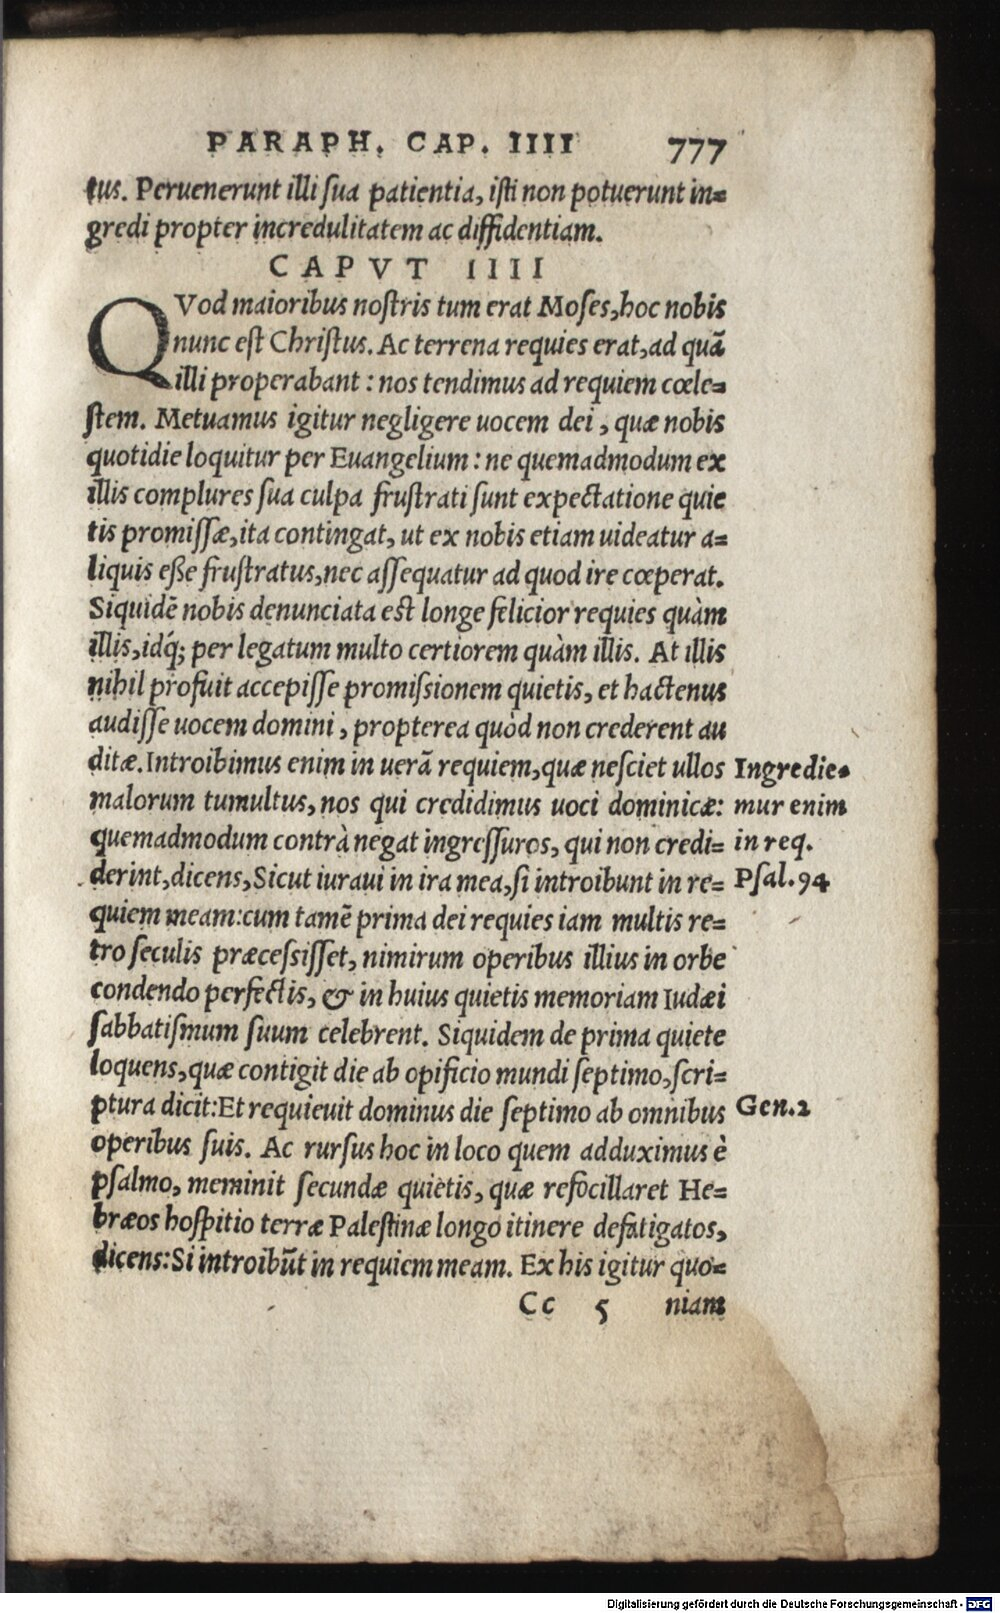 PARAPH. CAP. IIII 777
tus. Peruenerunt illi ſua patientia, iſti non potuerunt in=
gredi propter incredulitatem ac diffidentiam.
CAPVT IIII
QVod maioribus noſtris tum erat Moſes, hoc nobis
nunc eſt Chriſtus. Ac terrena requies erat, ad quã
illi properabant : nos tendimus ad requiem cœle=
ſtem. Metuamus igitur negligere uocem dei , quæ nobis
quotidie loquitur per Euangelium : ne quemadmodum ex
illis complures ſua culpa fruſtrati ſunt expectatione quie
tis promiſſæ, ita contingat, ut ex nobis etiam uideatur a=
liquis eße fruſtratus, nec aſſequatur ad quod ire cœperat.
Siquidẽ nobis denunciata eſt longe felicior requies quàm
illis, idq́; per legatum multo certiorem quàm illis. At illis
nihil profuit accepiſſe promiſsionem quietis, et hactenus
audiſſe uocem domini , propterea quòd non crederent au
ditæ. Introibimus enim in uerã requiem, quæ neſciet ullos
Ingredie=
malorum tumultus, nos qui credidimus uoci dominicæ:
mur enim
quemadmodum contrà negat ingreſſuros, qui non credi=
in req.
derint, dicens, Sicut iuraui in ira mea, ſi introibunt in re=
Pſal. 94
quiem meam: cum tamẽ prima dei requies iam multis re=
tro ſeculis præceſsiſſet, nimirum operibus illius in orbe
condendo perfectis, & in huius quietis memoriam Iudæi
ſabbatiſmum ſuum celebrent. Siquidem de prima quiete
loquens, quæ contigit die ab opificio mundi ſeptimo, ſcri=
ptura dicit: Et requieuit dominus die ſeptimo ab omnibus
Gen. 2
operibus ſuis. Ac rurſus hoc in loco quem adduximus è
pſalmo, meminit ſecundæ quietis, quæ refocillaret He=
bræos hoſpitio terræ Paleſtinæ longo itinere defatigatos,
dicens: Si introibũt in requiem meam. Ex his igitur quo=
Cc 5 niam
Digitalisierung gefördert durch die Deutsche Forschungsgemeinschaft - DFG